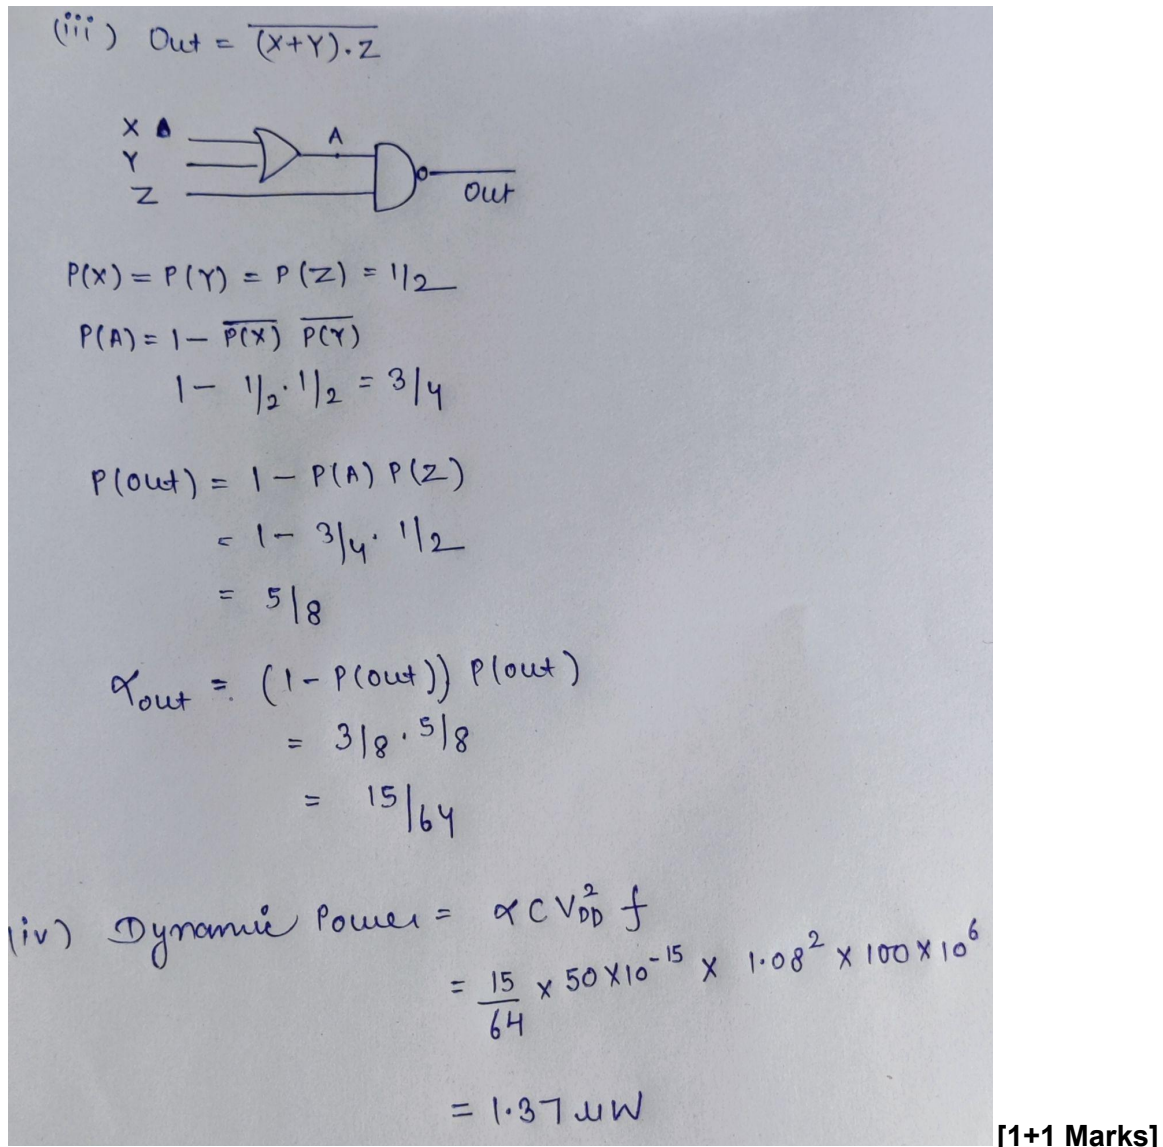 (iii) Out = \overline{(X+Y).Z}
X
Y
Z
A
Out
P(X) = P(Y) = P(Z) = 1/2
P(A) = 1 - \overline{P(X)} \overline{P(Y)}
1 - 1/2 · 1/2 = 3/4
P(out) = 1 - P(A) P(Z)
= 1 - 3/4 · 1/2
= 5/8
α_out = (1 - P(out)) P(out)
= 3/8 · 5/8
= 15/64
(iv) Dynamic Power = α C V_DD² f
= 15/64 × 50 × 10⁻¹⁵ × 1.08² × 100 × 10⁶
= 1.37 µW
[1+1 Marks]